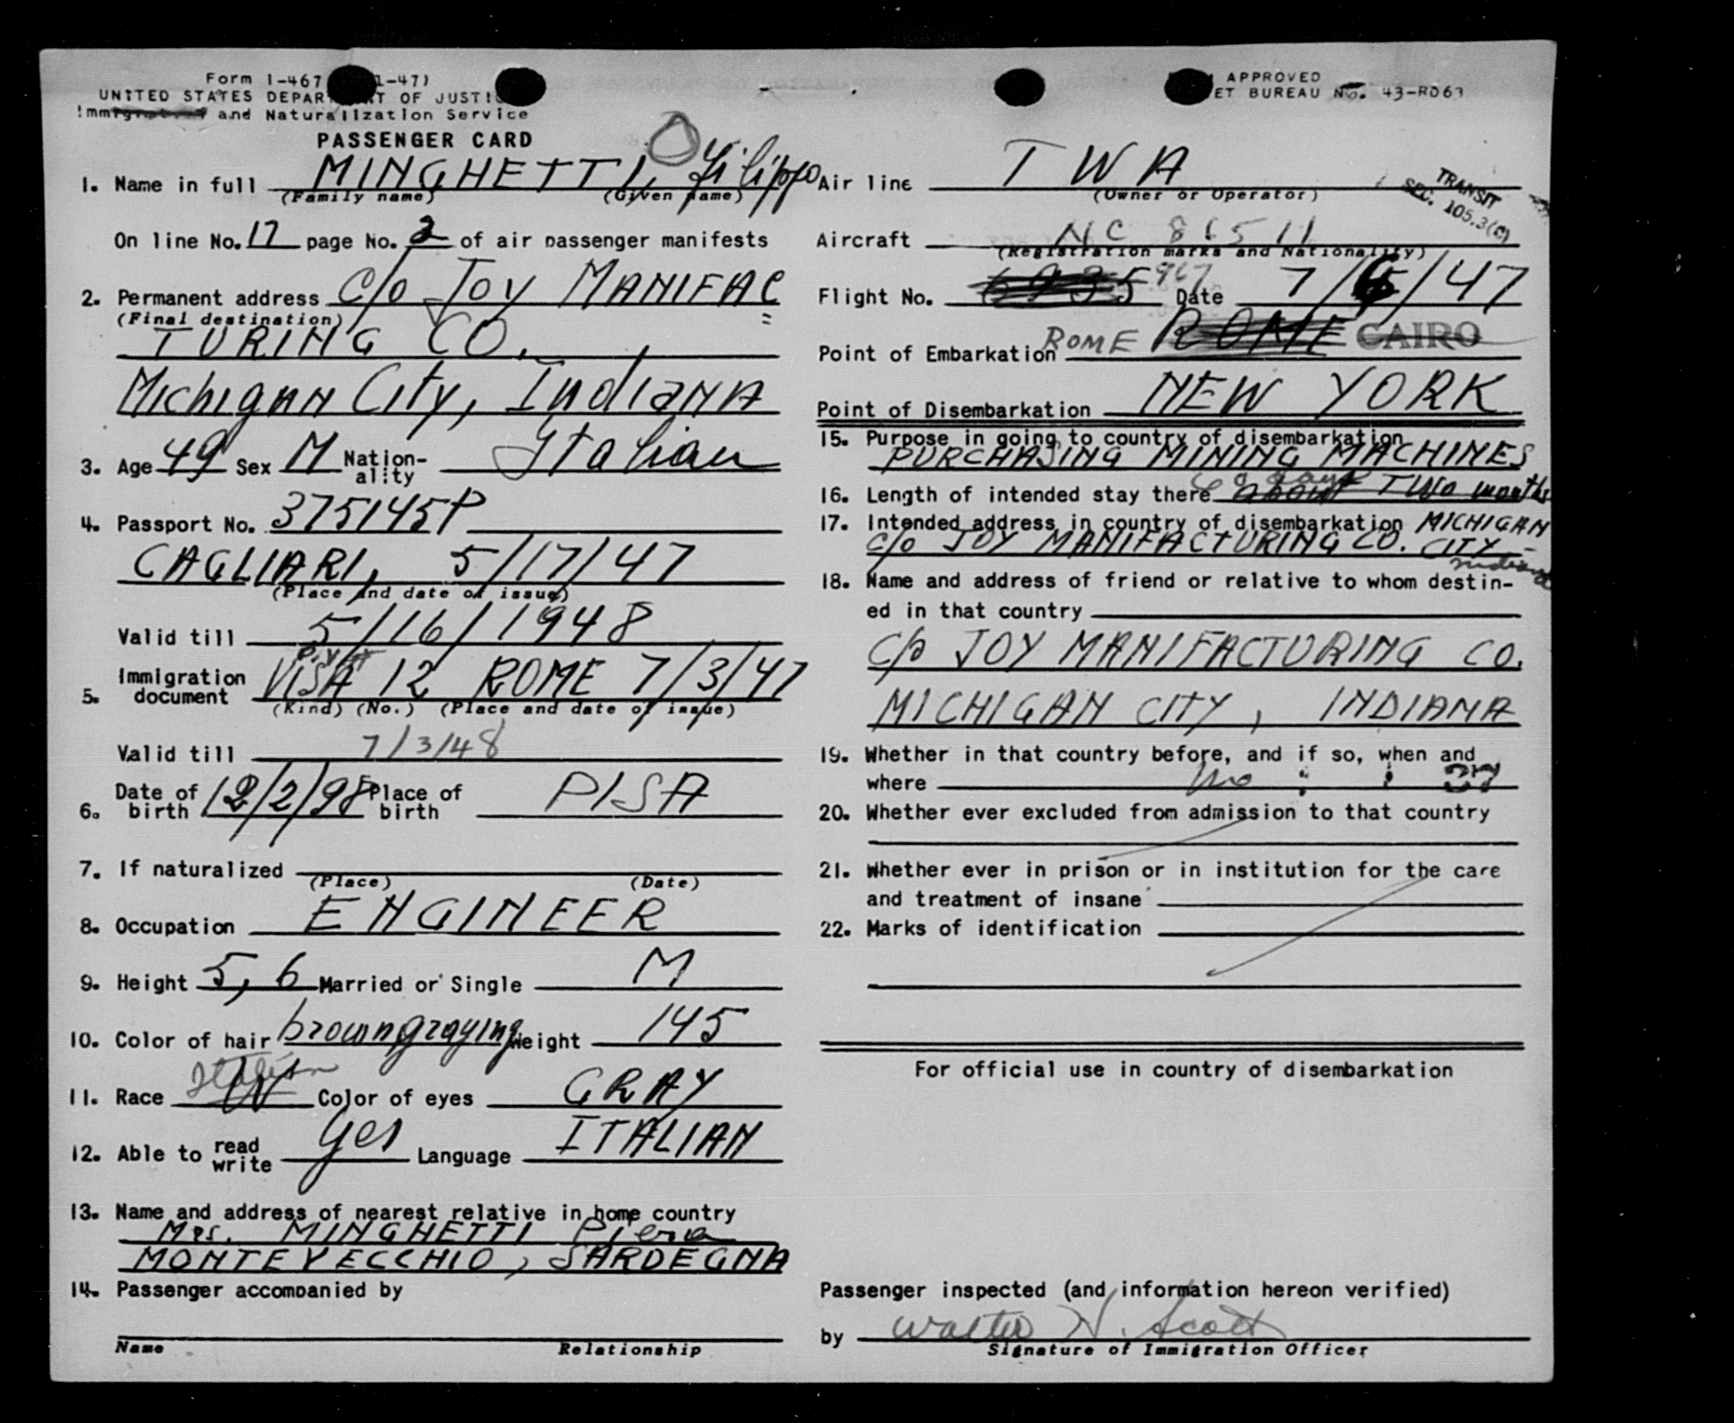 Form 1-467 1-47)
UNITED STATES DEPAR T OF JUSTI
Immigration and Naturalization Service
PASSENGER CARD
1. Name in full MINGHETTI, Filippo
(Family name) (Given name)
On line No. 17 page No. 2 of air passenger manifests
2. Permanent address c/o JOY MANIFAC
(Final destination)
TURING CO.,
Michigan City, Indiana
3. Age 49 Sex M Nation-ality Italian
4. Passport No. 375145P
CAGLIARI, 5/17/47
(Place and date of issue)
Valid till 5/16/1948
5. Immigration document VISA 12 ROME 7/3/47
(Kind) (No.) (Place and date of issue)
Valid till 7/3/48
6. Date of birth 12/2/98 Place of birth PISA
7. If naturalized
(Place) (Date)
8. Occupation ENGINEER
9. Height 5,6 Married or Single M
10. Color of hair brown graying Weight 145
11. Race Italian W Color of eyes GRAY
12. Able to read write yes Language ITALIAN
13. Name and address of nearest relative in home country
Mrs. MINGHETTI Piera
MONTEVECCHIO, SARDEGNA
14. Passenger accompanied by
Name Relationship
APPROVED
ET BUREAU No. 43-R063
Air line TWA
(Owner or Operator)
TRANSIT
SEC. 105.3(c)
Aircraft NC 86511
(Registration marks and Nationality)
Flight No. 6935 967 Date 7/6/47
Point of Embarkation ROME ROME CAIRO
Point of Disembarkation NEW YORK
15. Purpose in going to country of disembarkation
PURCHASING MINING MACHINES
16. Length of intended stay there 60 days about Two months
17. Intended address in country of disembarkation MICHIGAN
c/o JOY MANIFACTURING CO. CITY -
Indiana
18. Name and address of friend or relative to whom destin-
ed in that country
c/o JOY MANIFACTURING CO.
MICHIGAN CITY, INDIANA
19. Whether in that country before, and if so, when and
where no
20. Whether ever excluded from admission to that country
21. Whether ever in prison or in institution for the care
and treatment of insane
22. Marks of identification
For official use in country of disembarkation
Passenger inspected (and information hereon verified)
by Walter N. Scott
Signature of Immigration Officer